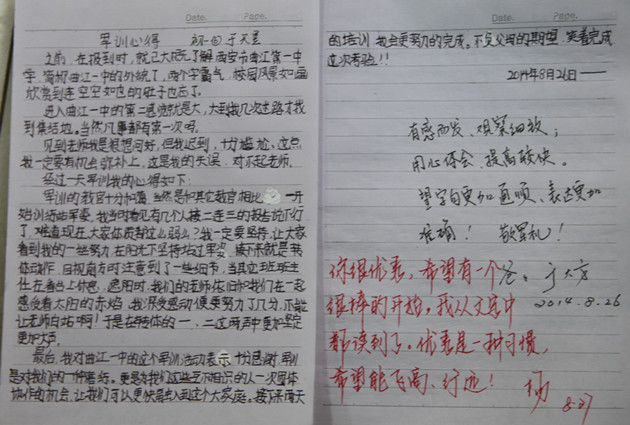 Date.  Page.
军训心得 解自于天昱
之前，在报到时，就已大体了解西安市曲江第一中
学，简称曲江一中的外貌了，两个字霸气，校园风景如画
欣赏到连空空如也的肚子也忘了。
进入曲江一中的第二感觉就是大，大到我几次迷路才找
到集结地。当然凡事都有第一次吗。
见到老师我是很想问好，但我迟到，十分尴尬，这点
我一定要有机会弥补上，这是我的失误，对不起老师。
经过一天军训我的心得如下：
军训的教官十分和蔼，当然是和其它教官相比 一开
始训练站军姿，我当时看见有几个人接二连三的报告说不行
了，难道现在大家体质都这么弱么？我一定要坚持，让大家
看到我的一些努力，在阳光下坚持站过军姿，接下来就是转
体动作，目视前方时注意到了一些细节，当其它班班主
任在看台上休息，遮阳时，我们的老师依旧和我们在一起
感受着太阳的赤焰，我深受感动，便要努力了几分，不能
让老师白站啊！于是在转体的一、二这两声中更加坚定
更加大声。
最后，我对曲江一中的这个军训活动表示十分感谢，军训
是对我们的一种磨练。更是为我们这些互不相识的人一次团体
协作的机会，让我们可以更快是融入到这个大家庭。接下来两天
Date.  Page.
的培训，我会更努力的完成。不负父母的期望，笑着完成
这次考验！！
2014年8月26日——
有感而发、观察细致；
用心体会、提高较快。
望字句更加通顺、表达更加
准确！ 敬军礼！
爸：于大方
2014.8.26
你很优秀，希望有一个
很棒的开始，我从文字中
都读到了。优秀是一种习惯，
希望能飞高、行远！
杨
8.27